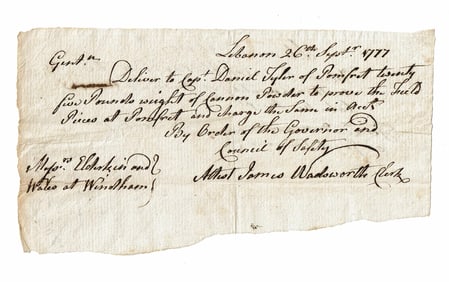 Lebanon 26th Septr. 1777
Gentn
Deliver to Capt Daniel Tyler of Pomfret twenty
five Pounds weight of Cannon Powder to prove the Field
Pieces at Pomfret and charge the Same in Acct.
By Order of the Governor and
Council of Safety
Messrs Elderkin and
Wales at Windham
Attest James Wadsworth Clerk